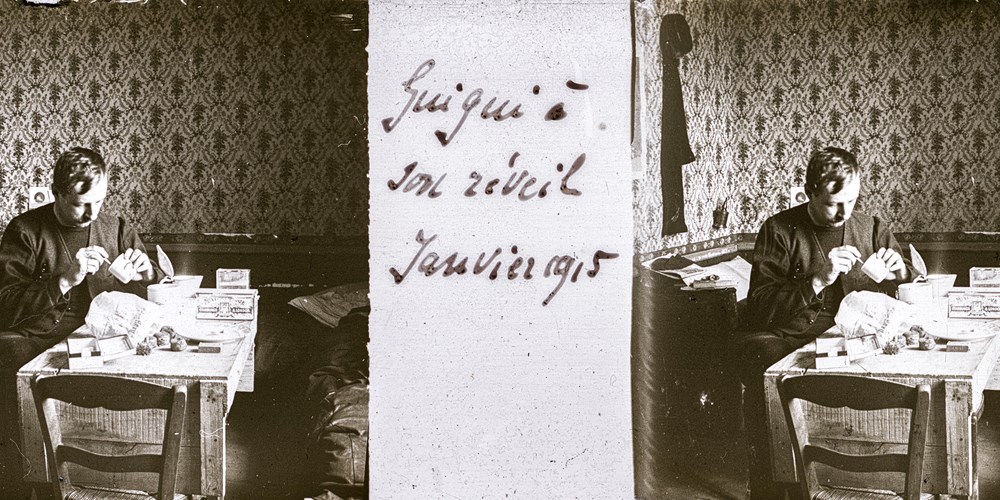 Guigui à
son réveil
Janvier 1915